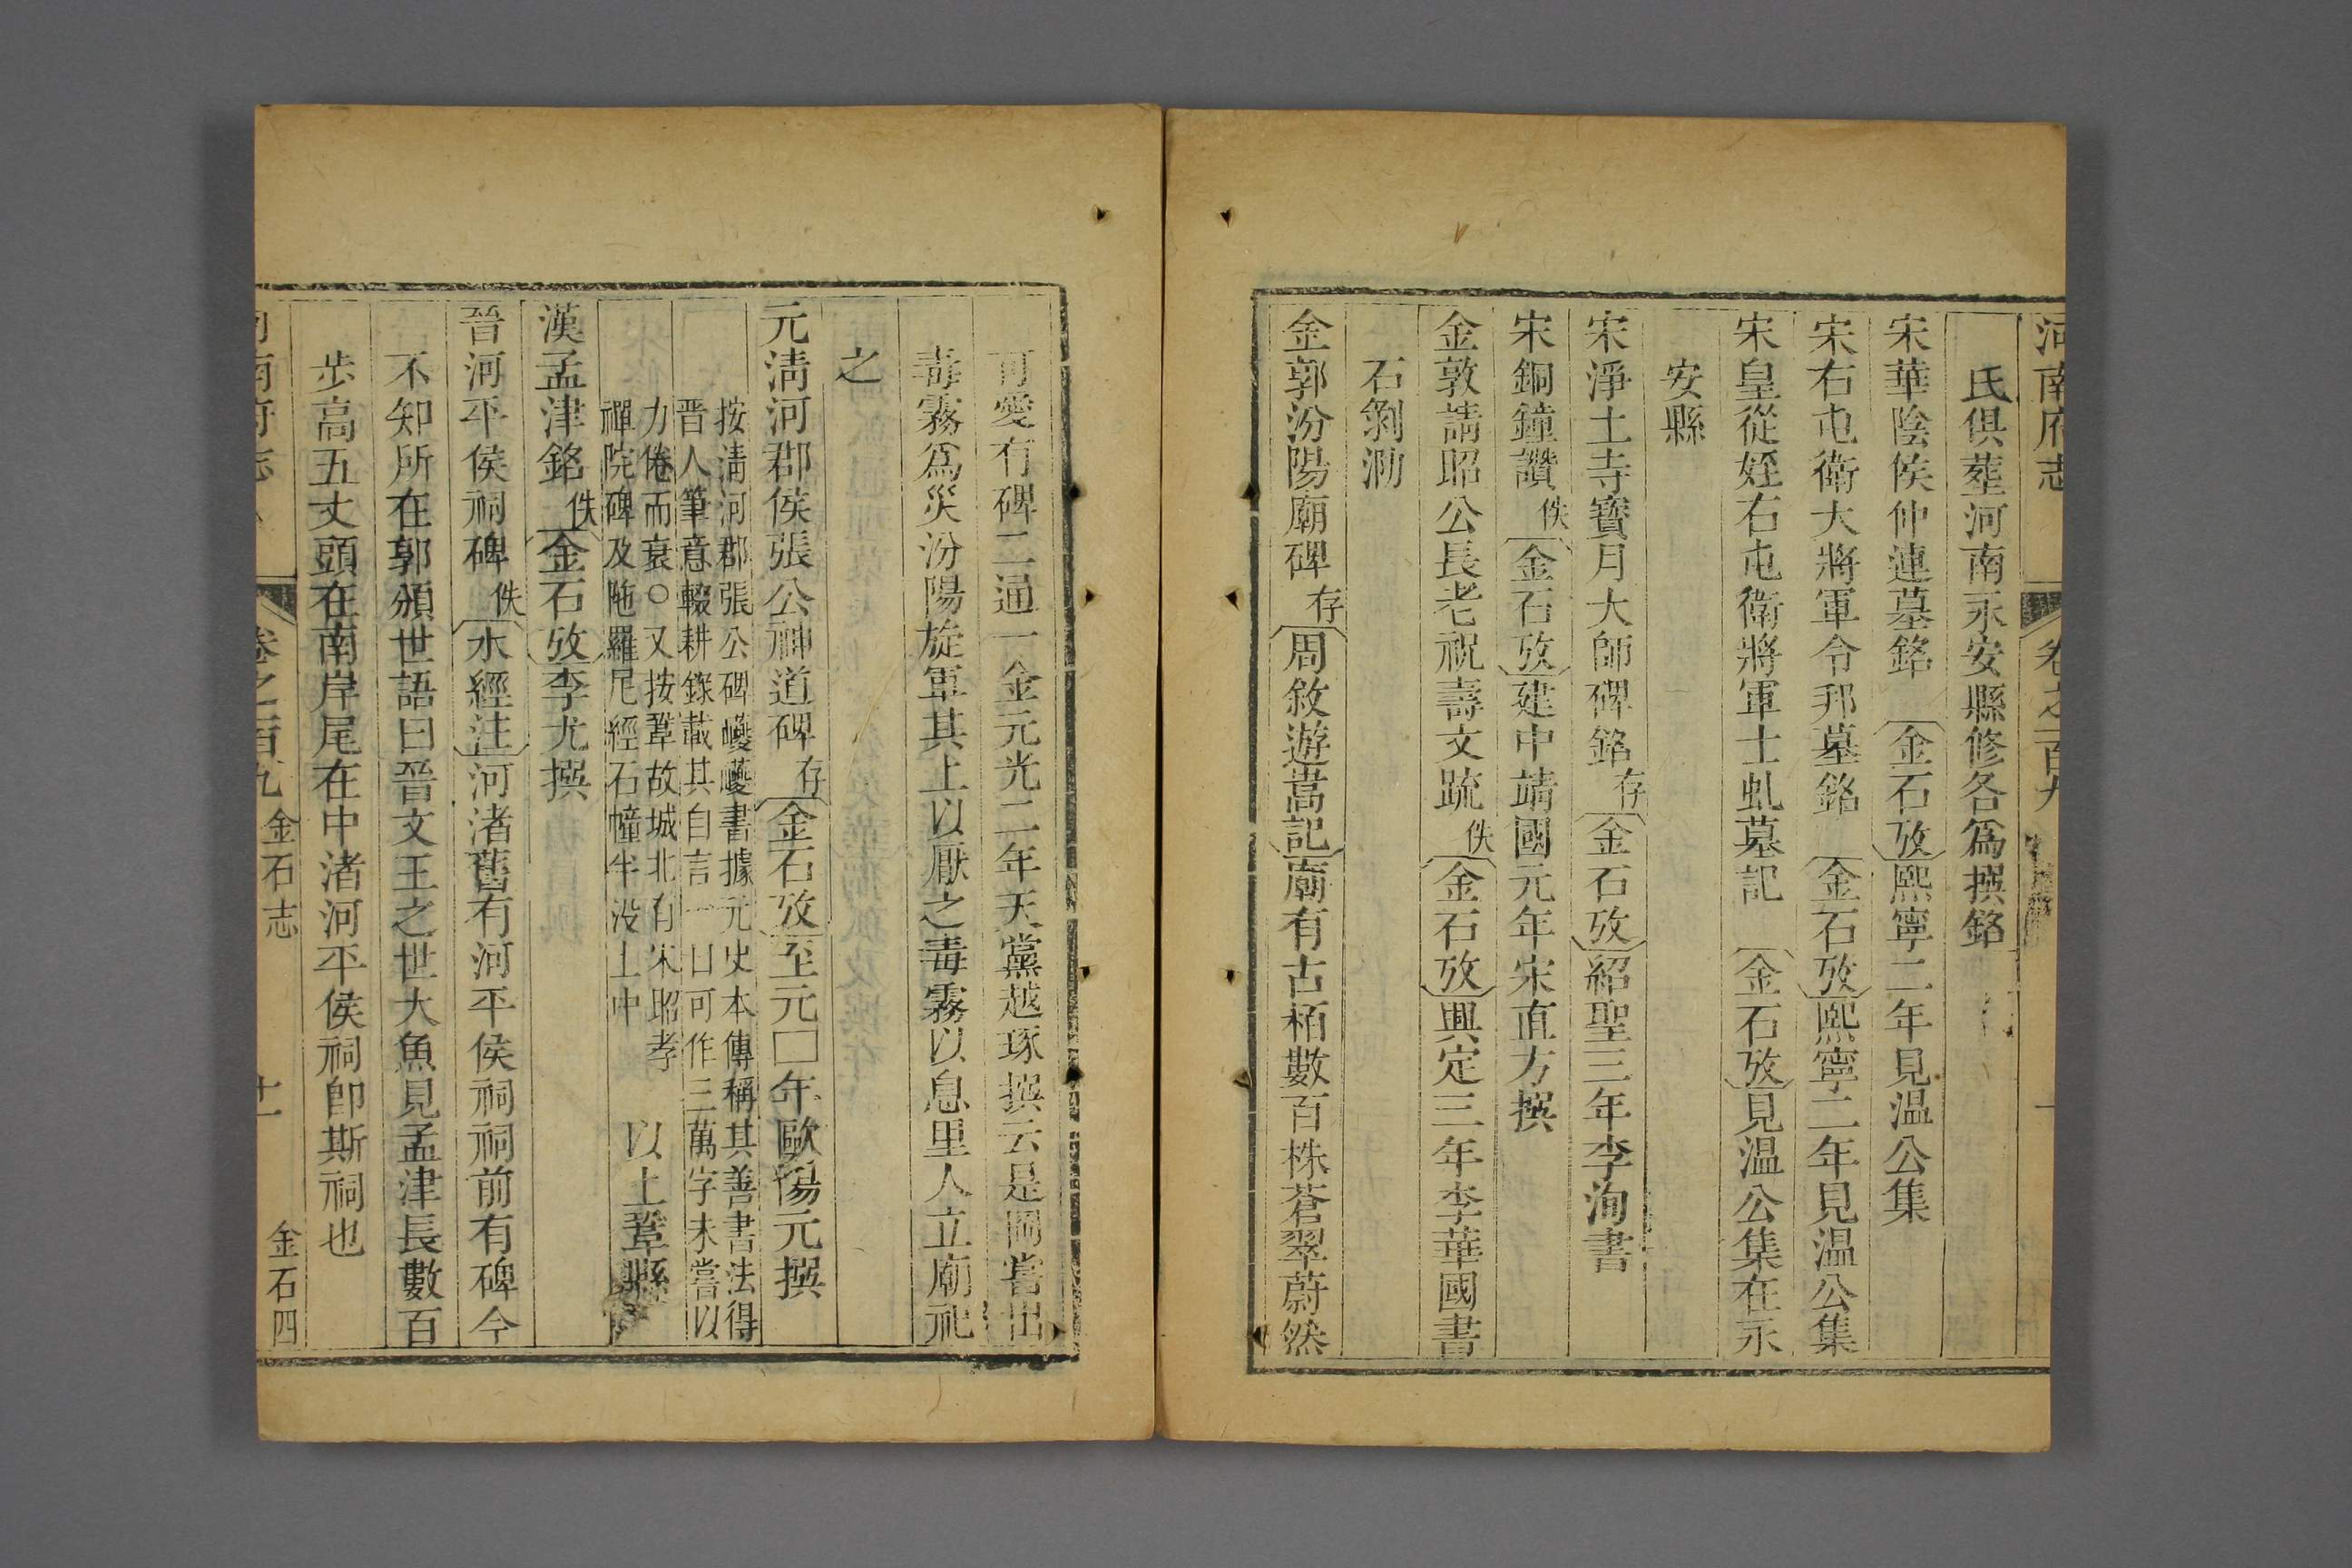 河南府志 卷之一百九
氏俱葬河南永安縣修各爲撰銘
宋華陰侯仲連墓銘 金石攷熙寧二年見温公集
宋右屯衛大將軍令邦墓銘 金石攷熙寧二年見温公集
宋皇從姪右屯衛將軍士虬墓記 金石攷見温公集在永
安縣
宋淨土寺寶月大師碑銘存金石攷紹聖三年李洵書
宋銅鐘讚佚金石攷建中靖國元年宋直方撰
金敦請昭公長老祝壽文䟽佚金石攷興定三年李華國書
石剝泐
金郭汾陽廟碑存周敘遊嵩記廟有古栢數百株蒼翠蔚然
可愛有碑二通一金元光二年天黨越琢撰云是岡嘗出
毒霧爲災汾陽旋軍其上以厭之毒霧以息里人立廟祀
之
元淸河郡侯張公神道碑存金石攷至元□年歐陽元撰
按淸河郡張公碑巙巙書據元史本傳稱其善書法得
晋人筆意輟耕錄載其自言一日可作三萬字未嘗以
力倦而衰○又按鞏故城北有宋昭孝
禪院碑及陁羅尼經石幢半没土中 以上鞏縣
漢孟津銘佚金石攷李尤撰
晉河平侯祠碑佚水經注河渚舊有河平侯祠祠前有碑今
不知所在郭頒世語曰晉文王之世大魚見孟津長數百
步高五丈頭在南岸尾在中渚河平侯祠卽斯祠也
河南府志 卷之一百九 金石志 十一 金石四